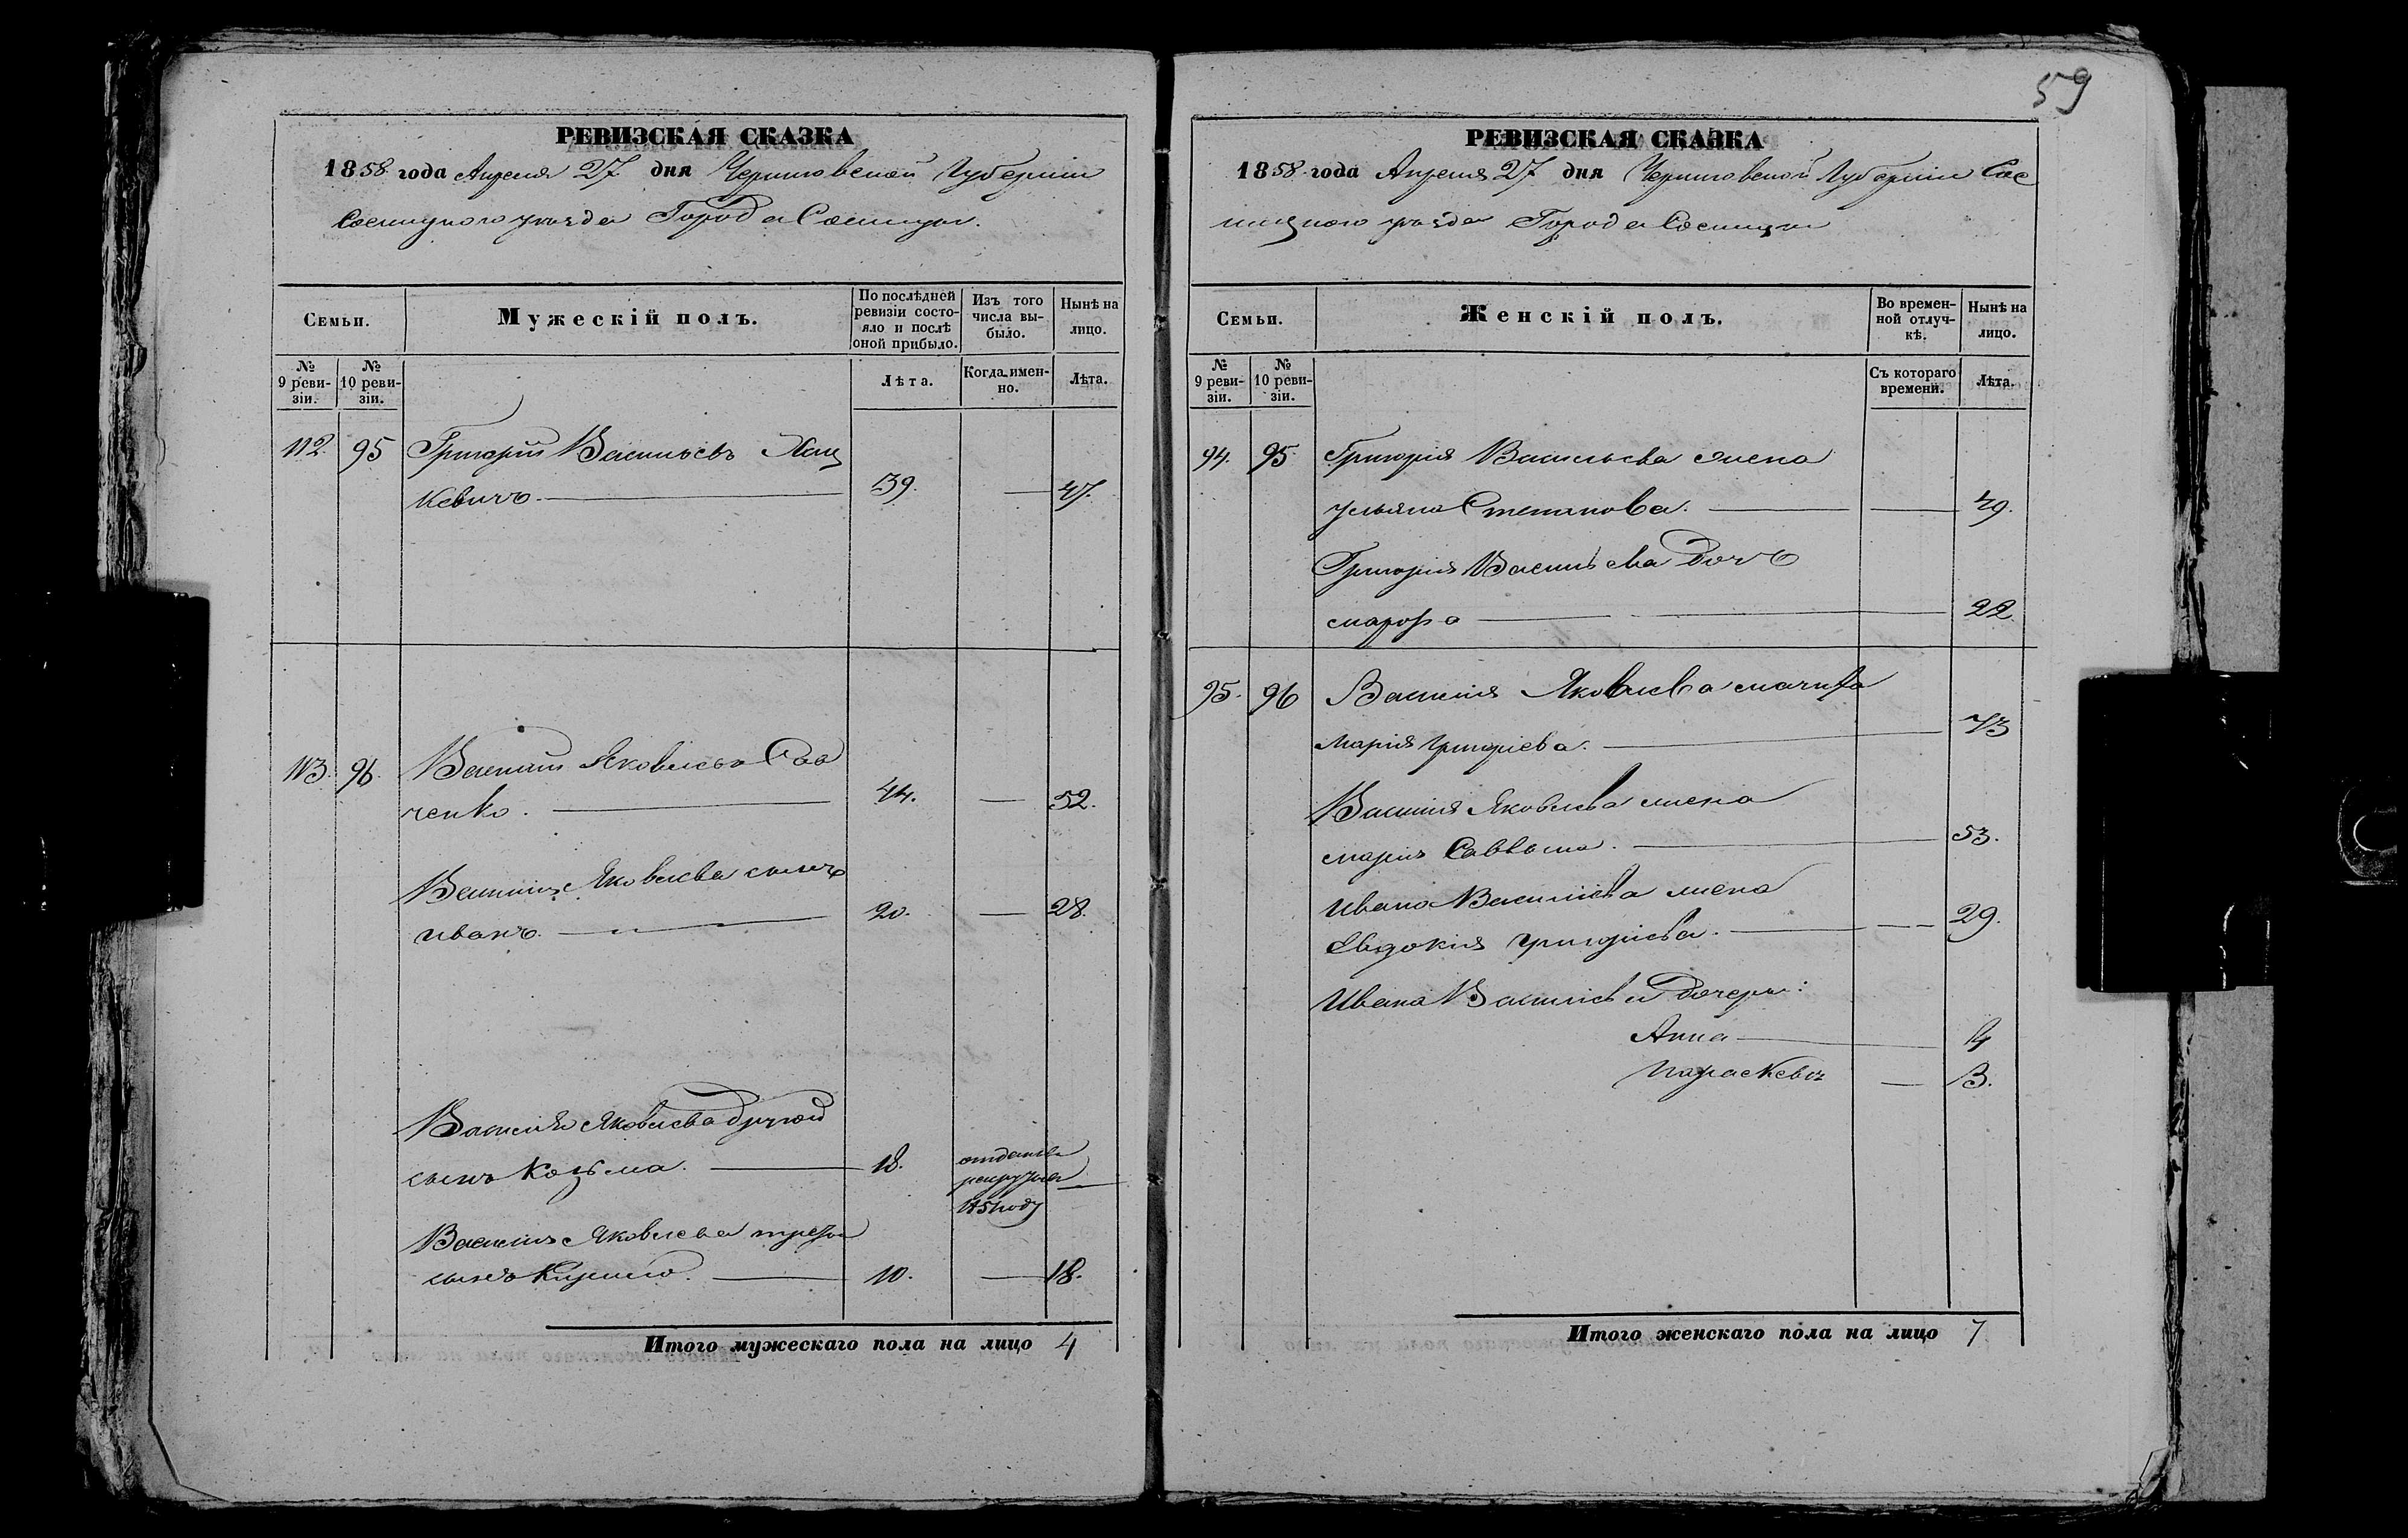 59
РЕВИЗСКАЯ СКАЗКА
1858 года Апреля 27 дня Черниговской Губернiи
Сосницкого уезда Города Сосницы.
Семьи.
Мужескiй полъ.
По послѣдней ревизiи состояло и послѣ оной прибыло.
Изъ того числа выбыло.
Нынѣ на лицо.
№ 9 ревизiи.
№ 10 ревизiи.
Лѣта.
Когда именно.
Лѣта.
112. 95 Григорiй Васильевъ Хац
кевичъ. 39. — 47.
113. 96. Василiй Яковлевъ Сав
ченко. 44. — 52.
Василiя Яковлева сынъ
Иванъ. 20. — 28.
Василiя Яковлева другой
сынъ Козьма. 18. отданъ въ
рекруты
Василiя Яковлева третiй
сынъ Кирило. 10. — 18.
Итого мужескаго пола на лицо 4
РЕВИЗСКАЯ СКАЗКА
1858 года Апреля 27 дня Черниговской Губернiи Сос
ницкого уезда Города Сосницы
Семьи.
Женскiй полъ.
Во временной отлучкѣ.
Нынѣ на лицо.
№ 9 ревизiи.
№ 10 ревизiи.
Съ котораго времени.
Лѣта.
94. 95. Григорiя Васильева жена
Ульяна Степанова. — 49.
Григорiя Васильева дочь
Марфа — 22
95. 96 Василiя Яковлева мачиха
Марiя Григорiева. — 73
Василiя Яковлева жена
Марiя Саввына. — 53.
Ивана Василiева жена
Евдокiя Григорiева. — 29.
Ивана Василiева дочери:
Анна — 4
Параскевiя — 3.
Итого женскаго пола на лицо 7